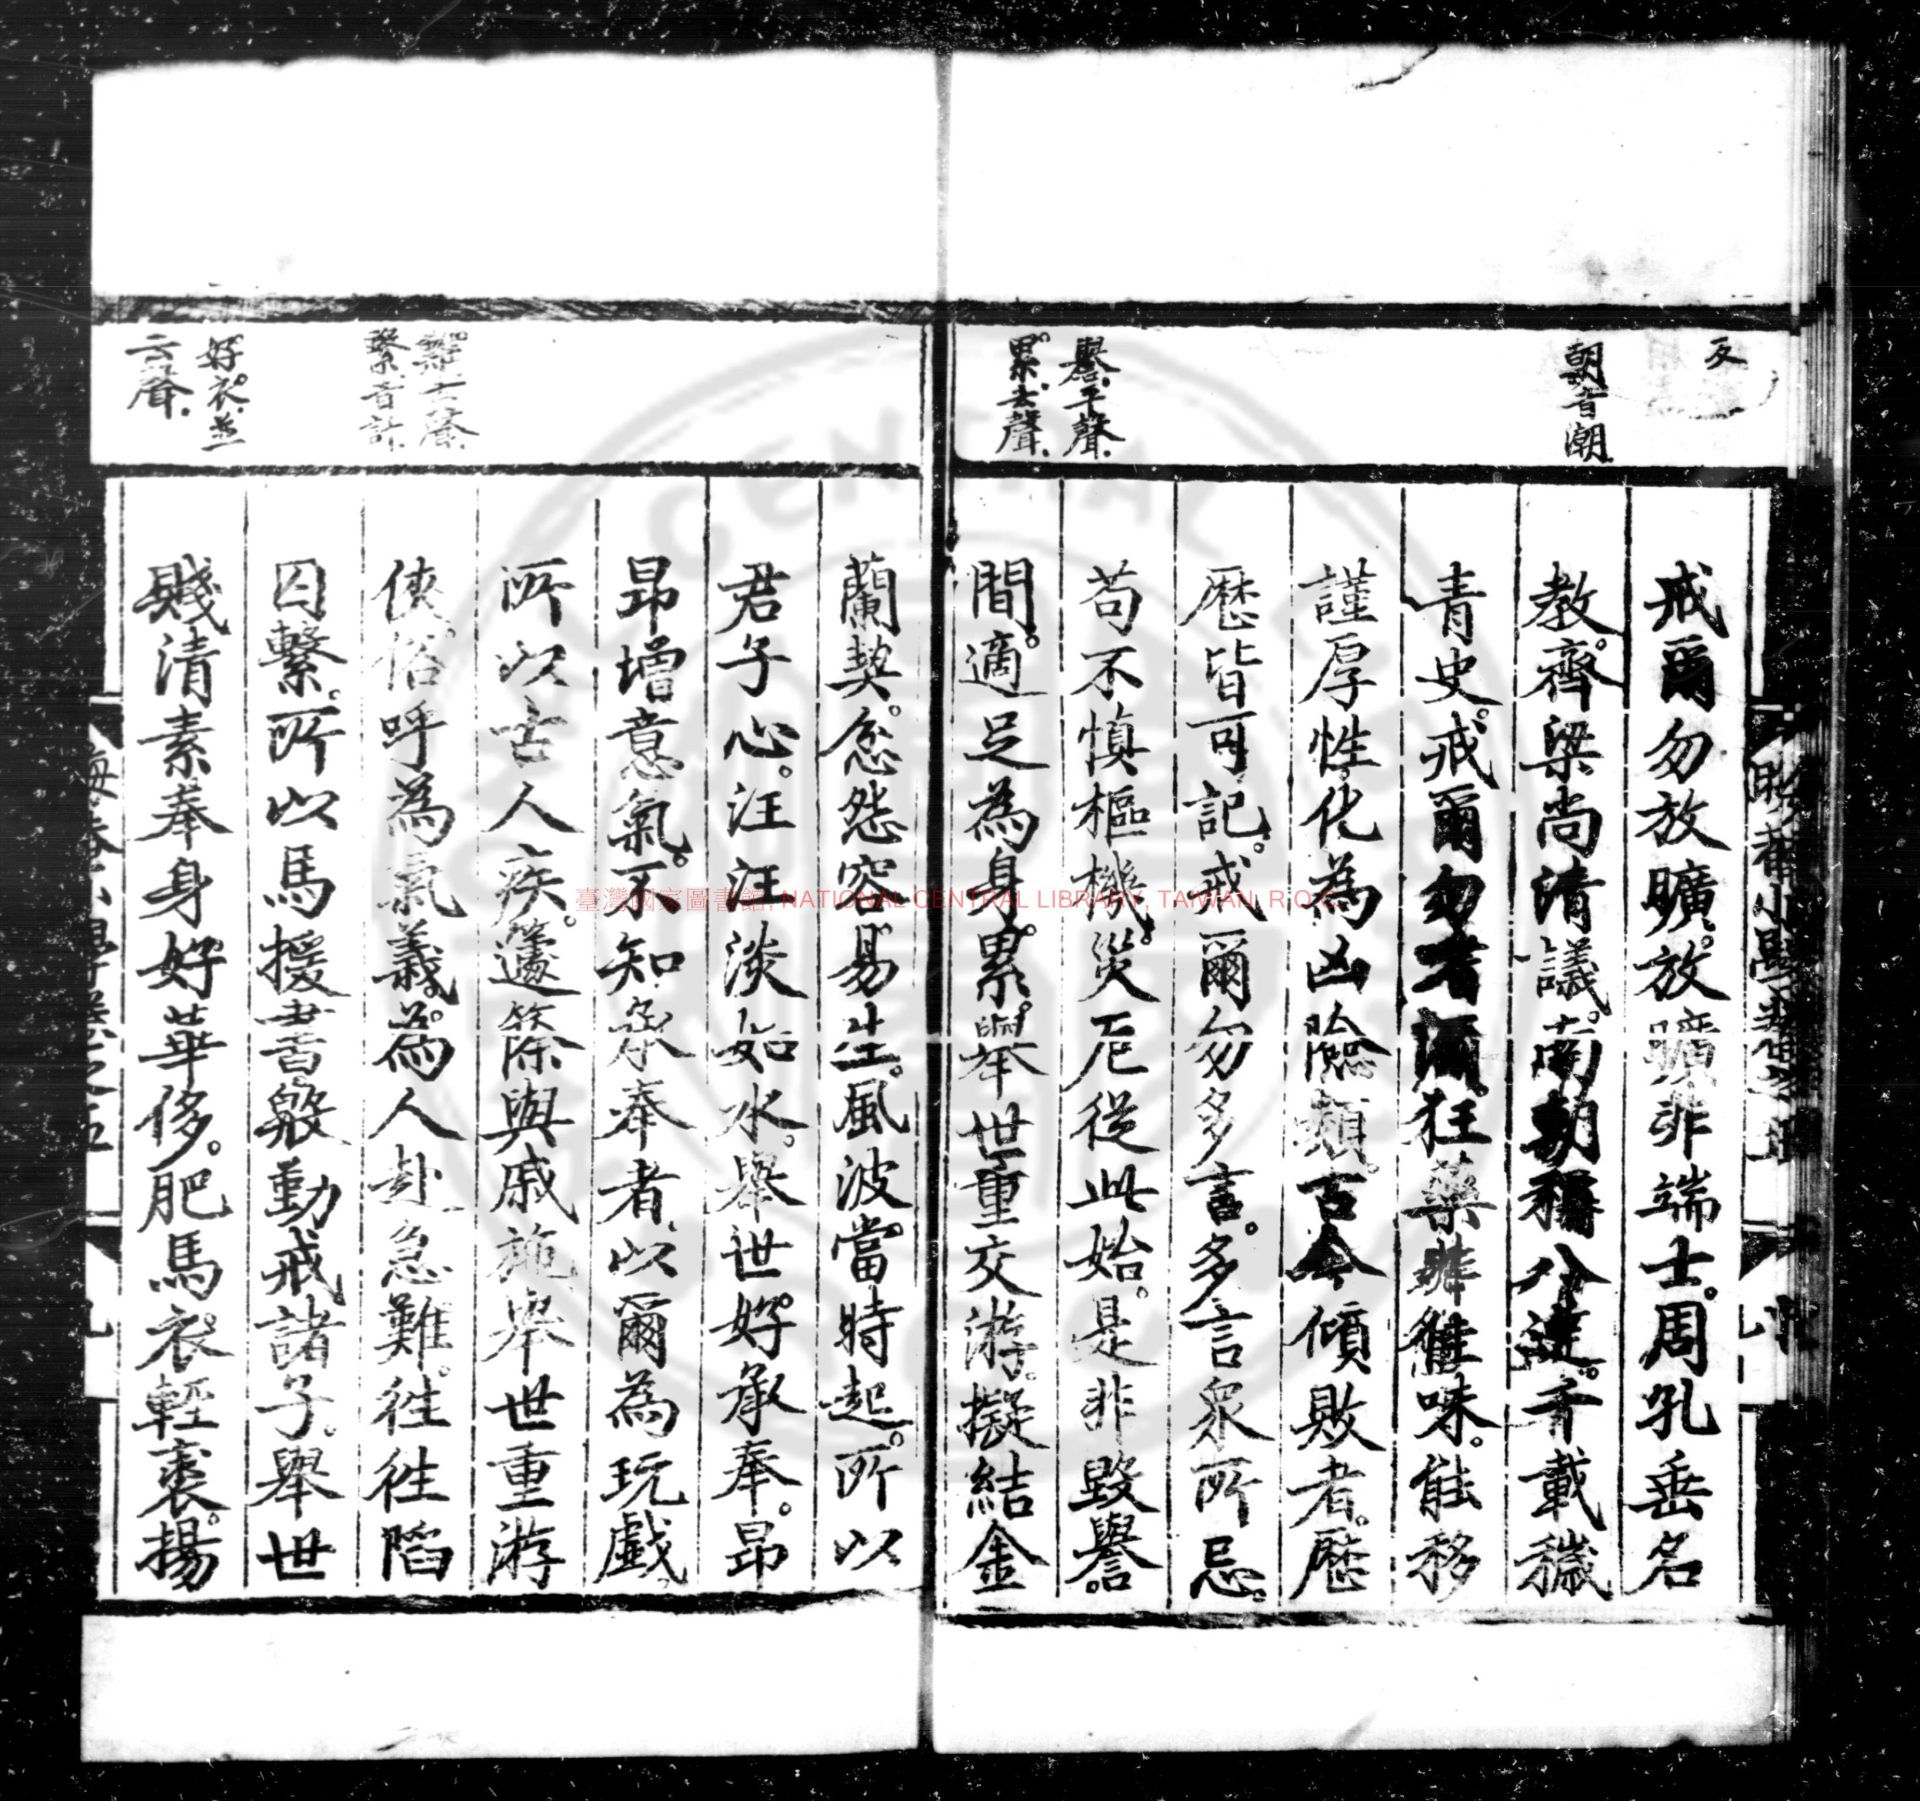 反
朝音潮
譽平聲
累去聲
戒爾勿放曠放曠非端士周孔垂名
教齊梁尚清議南朝稱八達千載穢
青史戒爾勿嗜酒狂藥非佳味能移
謹厚性化為凶險類古今傾敗者歷
歷皆可記戒爾勿多言多言眾所忌
苟不慎樞機災厄從此始是非毀譽
間適足為身累舉世重交游擬結金
去聲
繫音計
好衣並
去聲
蘭契忿怨容易生風波當時起所以
君子心汪汪淡如水舉世好承奉昂
昂增意氣不知承奉者以爾為玩戲
所以古人疾籧篨與戚施舉世重游
俠俗呼為氣義為人赴急難往往陷
囚繫所以馬援書殷勤戒諸子舉世
賤清素奉身好華侈肥馬衣輕裘揚
臺灣國家圖書館, NATIONAL CENTRAL LIBRARY, TAIWAN, R.O.C.